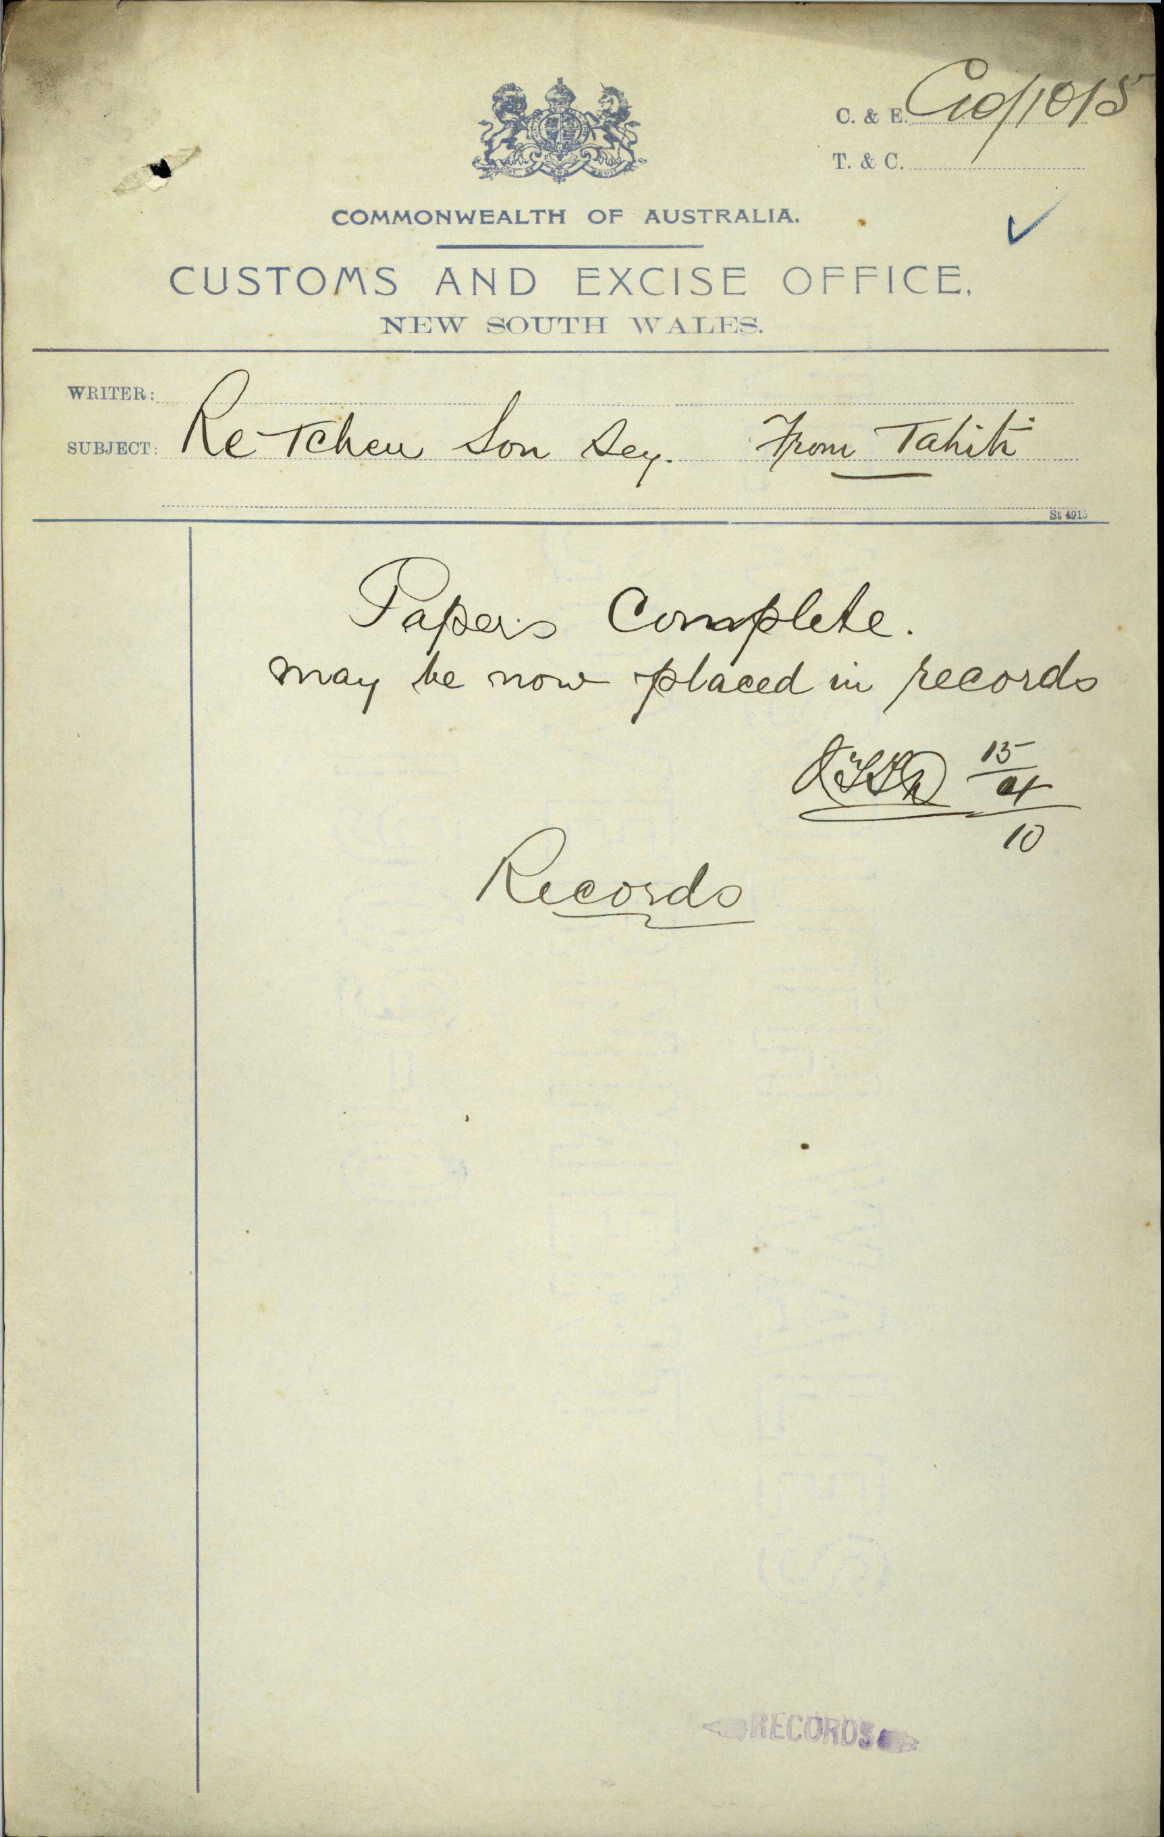 C. & E. C10/1015
T. & C.
COMMONWEALTH OF AUSTRALIA.
CUSTOMS AND EXCISE OFFICE,
NEW SOUTH WALES.
WRITER:
SUBJECT: Re Tcheu Son Sey. From Tahiti
St 4915
Papers Complete.
may be now placed in records
15
4
10
Records
RECORDS